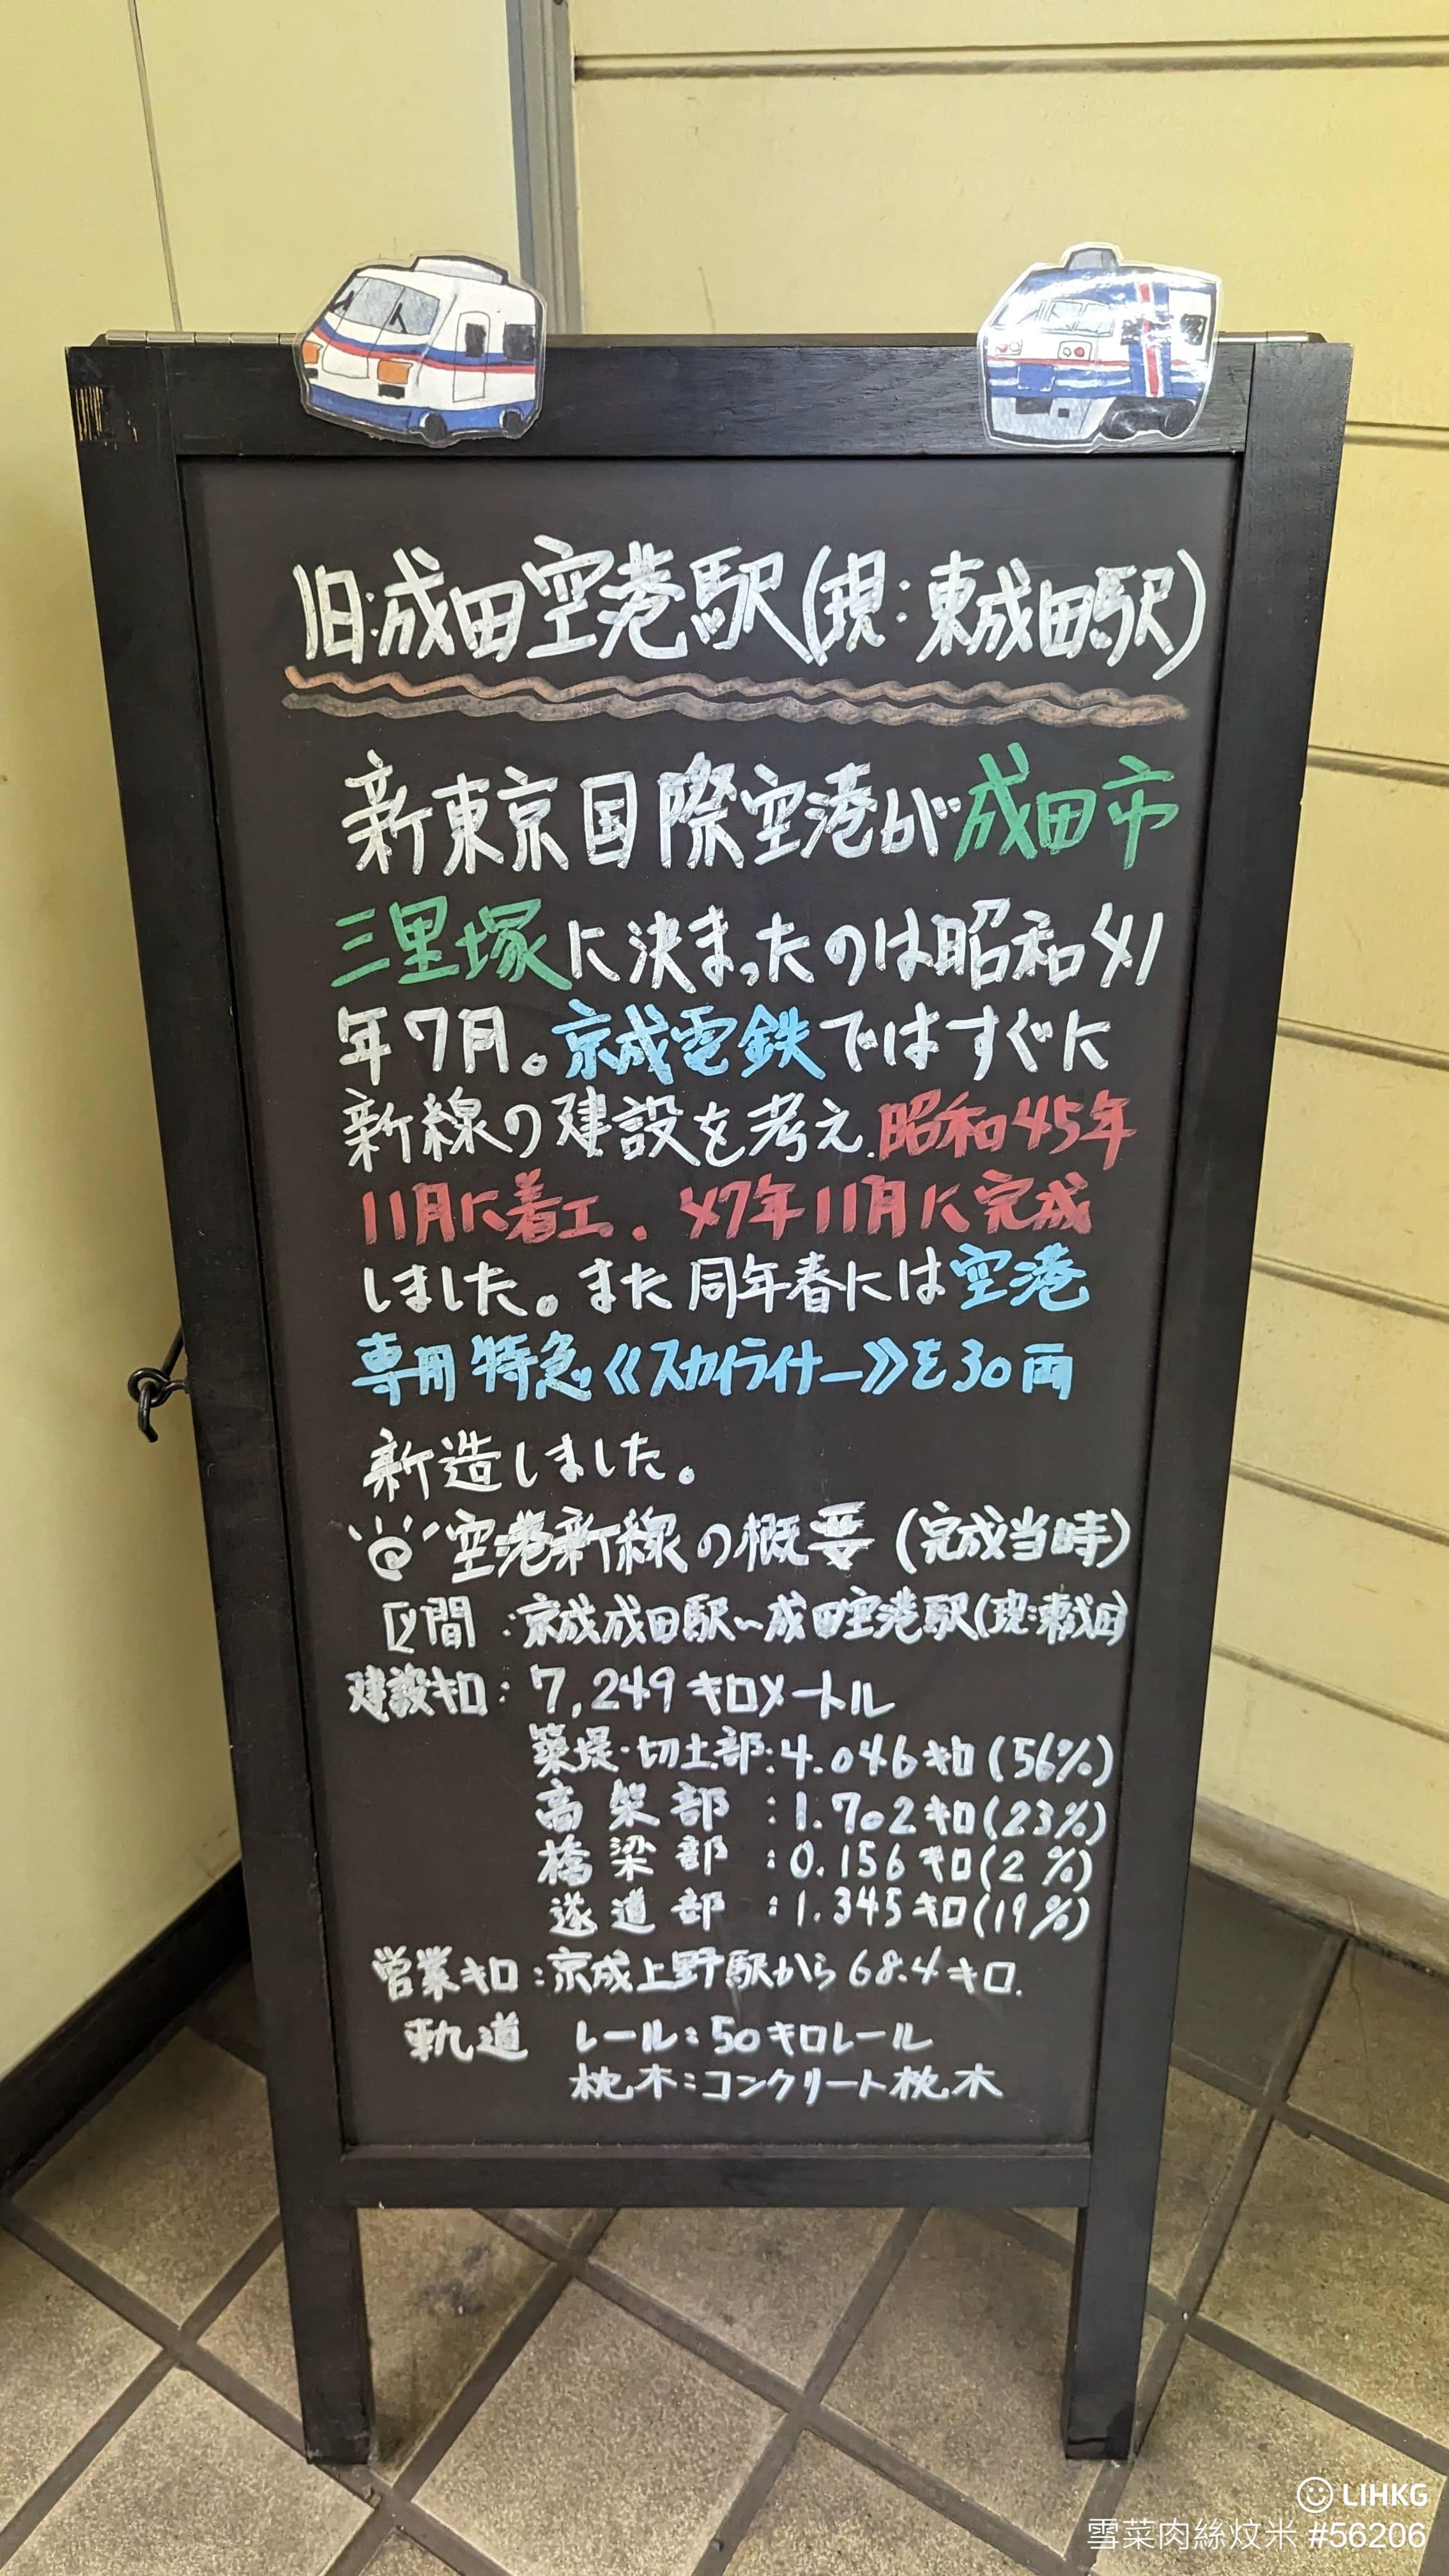 旧:成田空港駅(現:東成田駅)
新東京国際空港が成田市
三里塚に決まったのは昭和41
年7月。京成電鉄ではすぐに
新線の建設を考え、昭和45年
11月に着工、47年11月に完成
しました。また同年春には空港
専用特急《スカイライナー》を30両
新造しました。
空港新線の概要(完成当時)
区間:京成成田駅~成田空港駅(現:東成田)
建設キロ:7,249キロメートル
築堤・切土部:4.046キロ(56%)
高架部:1.702キロ(23%)
橋梁部:0.156キロ(2%)
遂道部:1.345キロ(19%)
営業キロ:京成上野駅から68.4キロ.
軌道 レール:50キロレール
枕木:コンクリート枕木
LIHKG
雪菜肉絲炆米 #56206